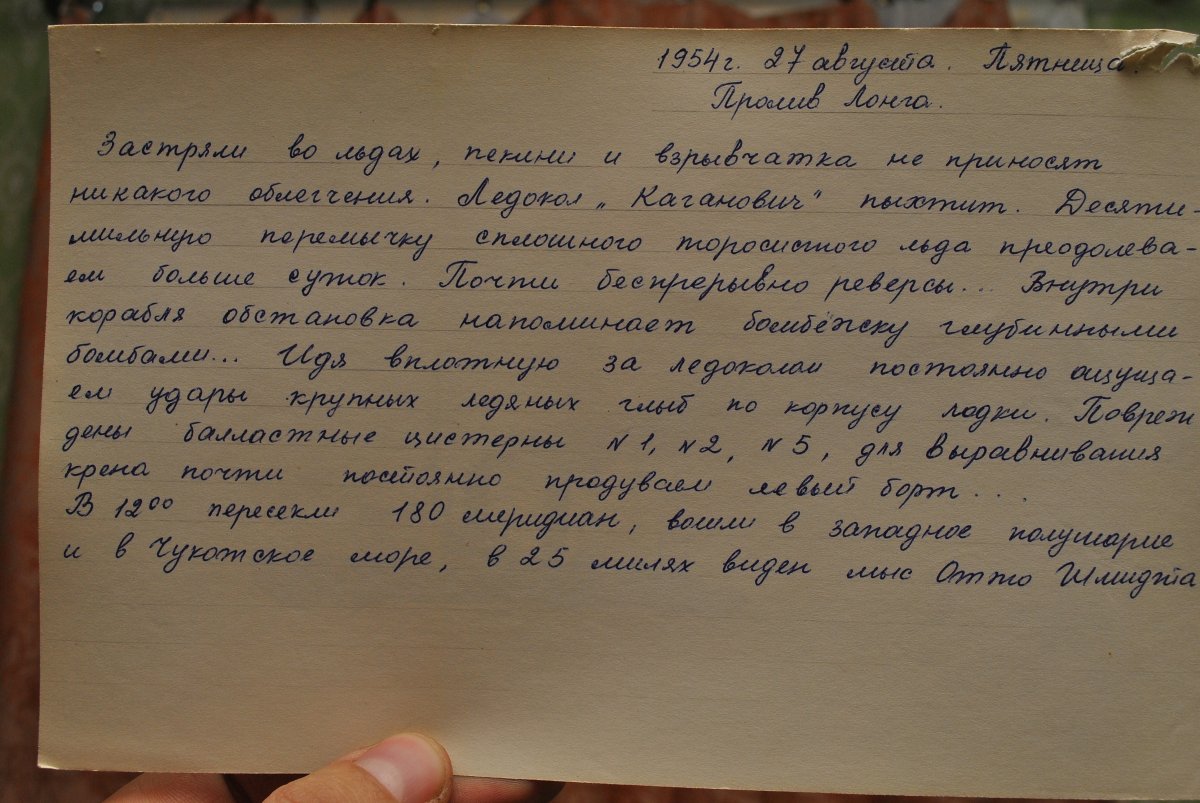 1954г. 27 августа. Пятница.
Пролив Лонга.
Застряли во льдах, пекини и взрывчатка не приносят
никакого облегчения. Ледокол „Каганович" пыхтит. Десяти-
мильную перемычку сплошного торосистого льда преодолева-
ем больше суток. Почти беспрерывно реверсы... Внутри
корабля обстановка напоминает бомбёжку глубинными
бомбами... Идя вплотную за ледоколом постоянно ощуща-
ем удары крупных ледяных глыб по корпусу лодки. Повреж
дены балластные цистерны №1, №2, №5, для выравнивания
крена почти постоянно продуваем левый борт....
В 12⁰⁰ пересекли 180 меридиан, вошли в западное полушарие
и в Чукотское море, в 25 милях виден мыс Отто Шмидта